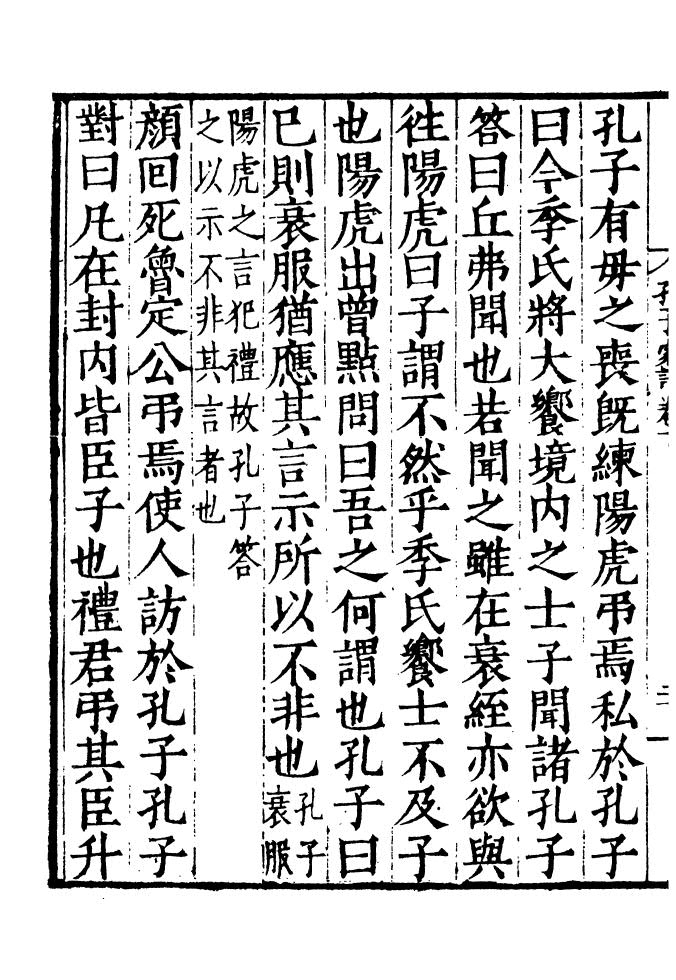 孔子家語卷十
二十一
孔子有毋之喪旣練陽虎弔焉私於孔子
曰今季氏將大饗境内之士子聞諸孔子
答曰丘弗聞也若聞之雖在衰絰亦欲與
徃陽虎曰子謂不然乎季氏饗士不及子
也陽虎出曾點問曰吾之何謂也孔子曰
已則衰服猶應其言示所以不非也孔子衰服
陽虎之言犯禮故孔子答
之以示不非其言者也
顔回死魯定公弔焉使人訪於孔子孔子
對曰凡在封内皆臣子也禮君弔其臣升